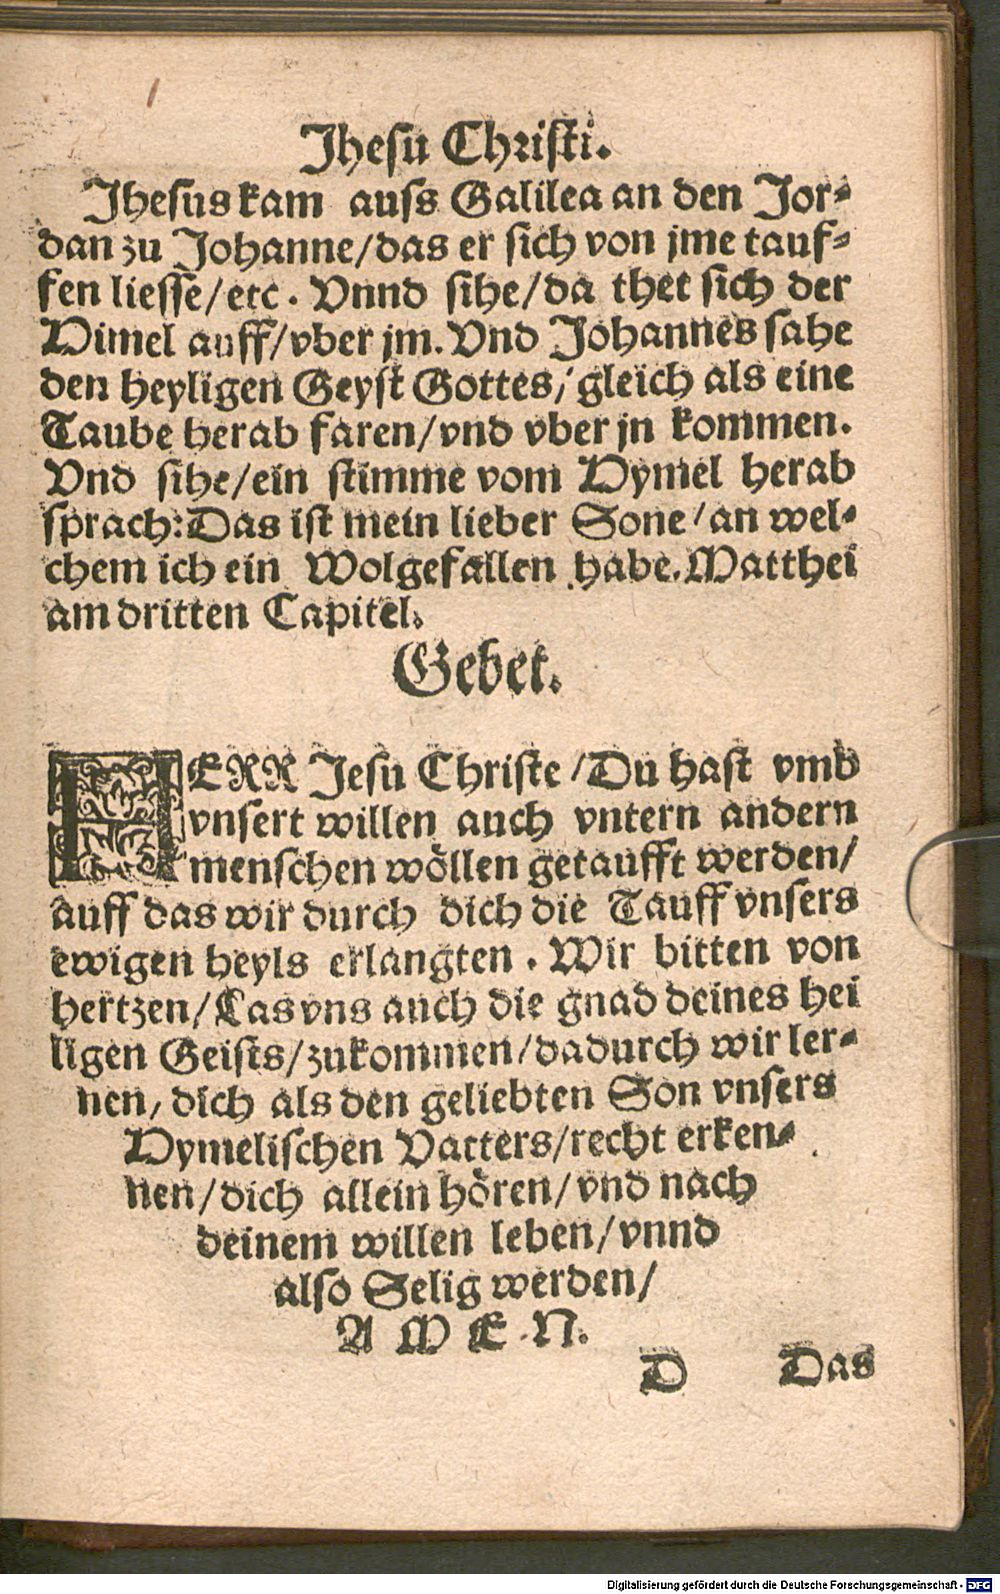 Jhesu Christi.
Jhesus kam auss Galilea an den Jor-
dan zu Johanne/das er sich von jme tauf-
fen liesse/etc. Vnnd sihe/da thet sich der
Himel auff/vber jm. Vnd Johannes sahe
den heyligen Geyst Gottes/gleich als eine
Taube herab faren/vnd vber jn kommen.
Vnd sihe/ein stimme vom Hymel herab
sprach: Das ist mein lieber Sone/an wel-
chem ich ein Wolgefallen habe. Matthei
am dritten Capitel.
Gebet.
HERR Jesu Christe/Du hast vmb
vnsert willen auch vntern andern
menschen wöllen getaufft werden/
auff das wir durch dich die Tauff vnsers
ewigen heyls erlangten. Wir bitten von
hertzen/Las vns auch die gnad deines hei
ligen Geists/zukommen/dadurch wir ler-
nen, dich als den geliebten Son vnsers
Hymelischen Vatters/recht erken-
nen/dich allein hören/vnd nach
deinem willen leben/vnnd
also Selig werden/
A M E N.
D Das
Digitalisierung gefördert durch die Deutsche Forschungsgemeinschaft - DFG